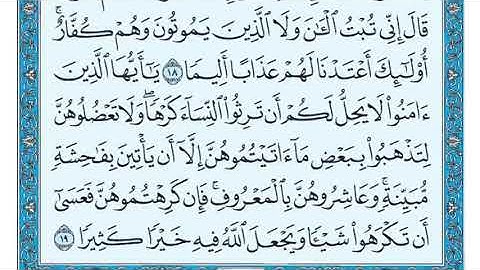 قَالَ إِنِّي تُبْتُ ٱلْـَٰٔنَ وَلَا ٱلَّذِينَ يَمُوتُونَ وَهُمْ كُفَّارٌ ۚ
أُو۟لَـٰٓئِكَ أَعْتَدْنَا لَهُمْ عَذَابًا أَلِيمًا ١٨ يَـٰٓأَيُّهَا ٱلَّذِينَ
ءَامَنُوا۟ لَا يَحِلُّ لَكُمْ أَن تَرِثُوا۟ ٱلنِّسَآءَ كَرْهًا ۖ وَلَا تَعْضُلُوهُنَّ
لِتَذْهَبُوا۟ بِبَعْضِ مَآ ءَاتَيْتُمُوهُنَّ إِلَّآ أَن يَأْتِينَ بِفَـٰحِشَةٍ
مُّبَيِّنَةٍ ۚ وَعَاشِرُوهُنَّ بِٱلْمَعْرُوفِ ۚ فَإِن كَرِهْتُمُوهُنَّ فَعَسَىٰٓ
أَن تَكْرَهُوا۟ شَيْـًٔا وَيَجْعَلَ ٱللَّهُ فِيهِ خَيْرًا كَثِيرًا ١٩